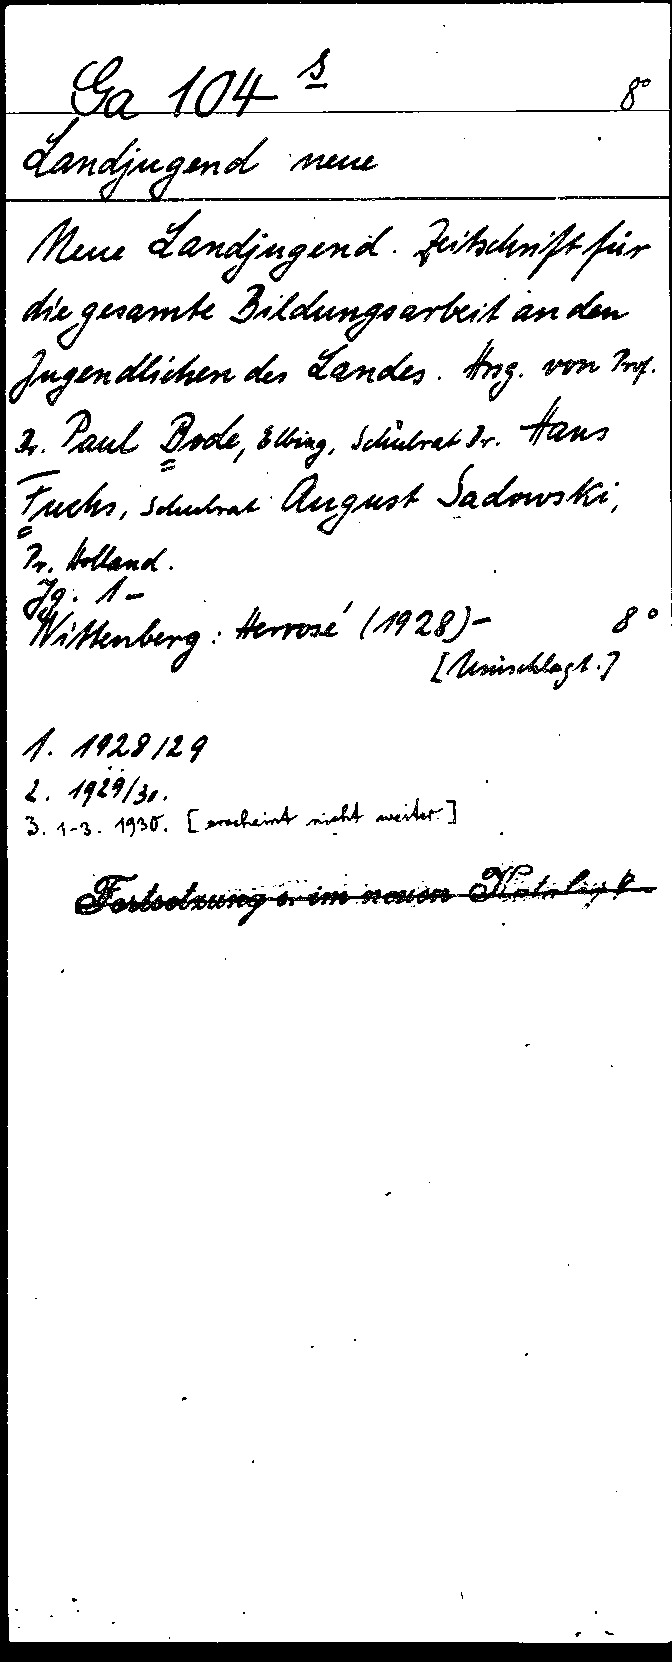 Ga 104 s 8°
Landjugend neue
Neue Landjugend. Zeitschrift für
die gesamte Bildungsarbeit an den
Jugendlichen des Landes. Hrsg. von Prof.
Dr. Paul Bode, Elbing, Schulrat Dr. Hans
Fuchs, Schulrat August Sadowski,
Pr. Holland.
Jg. 1-
Wittenberg: Herrosé (1928)- 8°
[Umschlagt.]
1. 1928/29
2. 1929/30.
3. 1-3. 1930. [erscheint nicht weiter]
Fortsetzung s. im neuen Katalog